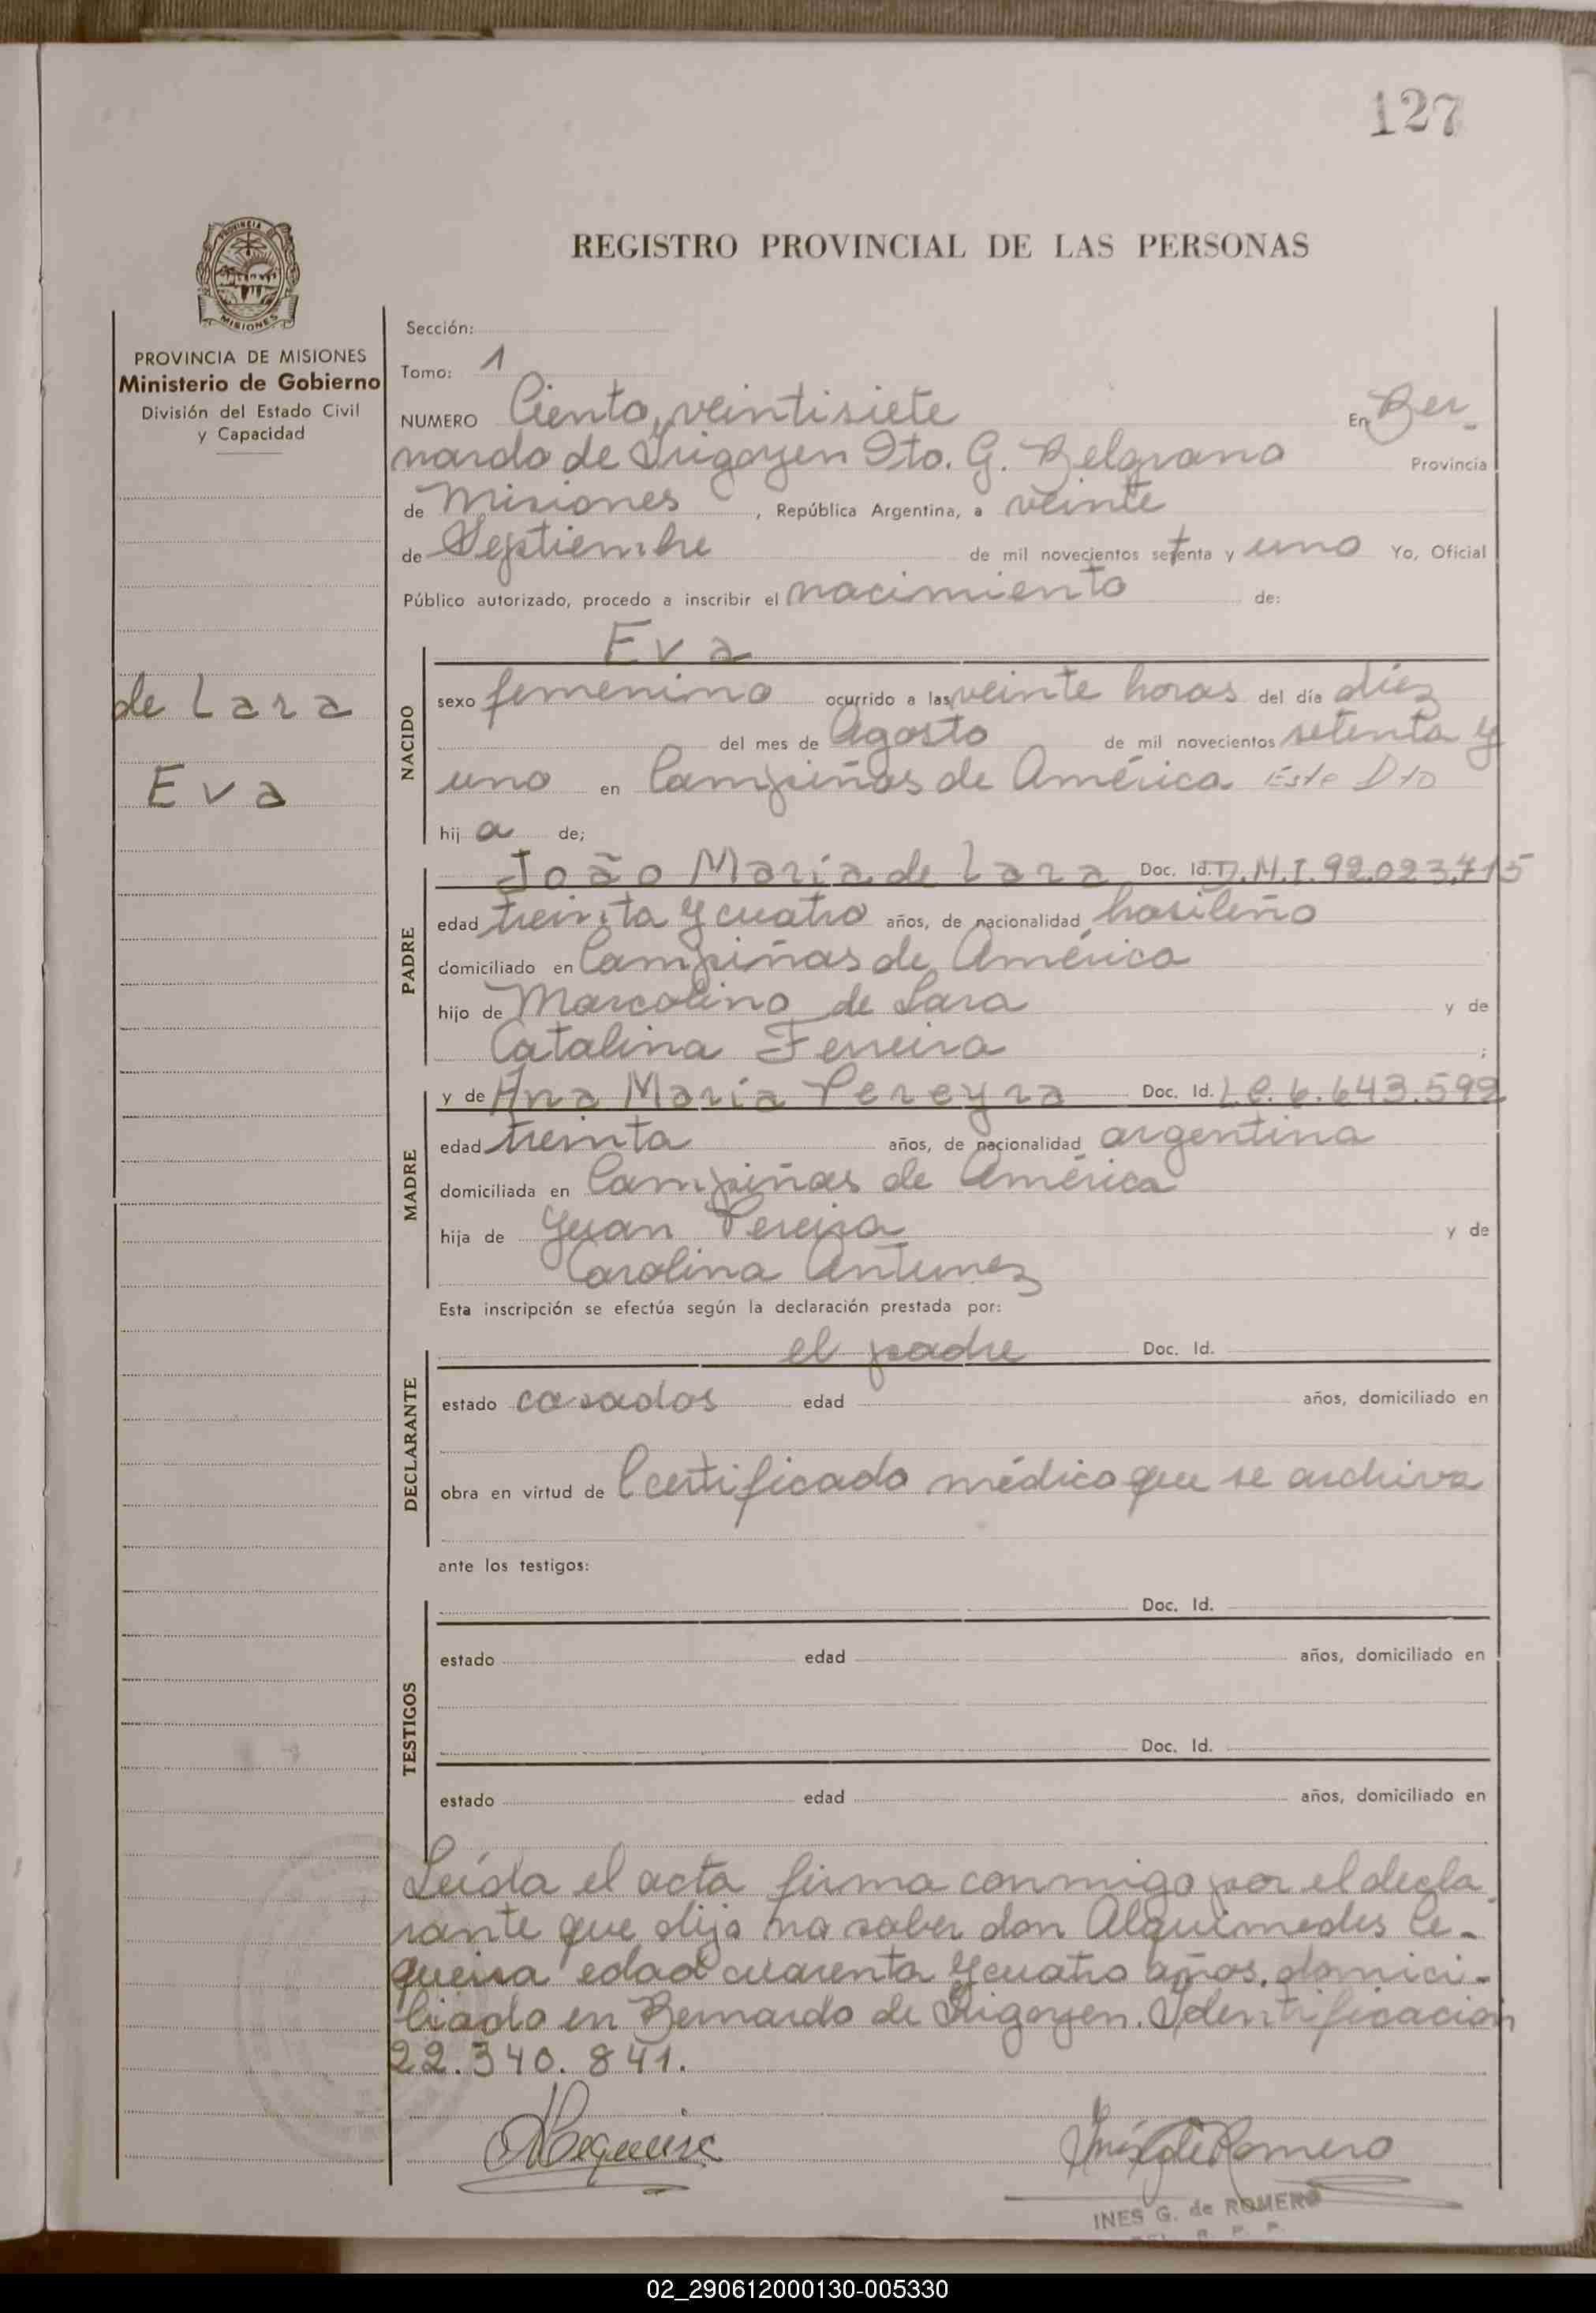 127
REGISTRO PROVINCIAL DE LAS PERSONAS
PROVINCIA DE MISIONES
Ministerio de Gobierno
División del Estado Civil
y Capacidad
de Lara
Eva
Sección:
Tomo: 1
NUMERO Ciento veintisiete En Ber-
nardo de Irigoyen Dto. G. Belgrano Provincia
de Misiones, República Argentina, a veinte
de Septiembre de mil novecientos setenta y uno Yo, Oficial
Público autorizado, procedo a inscribir el nacimiento de:
Eva
NACIDO
sexo femenino ocurrido a las veinte horas del día diez
del mes de Agosto de mil novecientos setenta y
uno en Campiñas de América Este Dto
hij a de;
PADRE
João María de Lara Doc. Id. D.N.I. 92.023.715
edad treinta y cuatro años, de nacionalidad brasileño
domiciliado en Campiñas de América
hijo de Marcolino de Lara y de
Catalina Ferreira ;
MADRE
y de Ana María Pereyra Doc. Id. L.C. 6.643.592
edad treinta años, de nacionalidad argentina
domiciliada en Campiñas de América
hija de Juan Pereira y de
Carolina Antunez
Esta inscripción se efectúa según la declaración prestada por:
DECLARANTE
el padre Doc. Id.
estado casados edad años, domiciliado en
obra en virtud de Ccertificado médico que se archiva
ante los testigos:
TESTIGOS
Doc. Id.
estado edad años, domiciliado en
Doc. Id.
estado edad años, domiciliado en
Leída el acta firma conmigo por el decla
rante que dijo no saber don Alquimedes Ce-
queira edad cuarenta y cuatro años, domici-
liado en Bernardo de Irigoyen. Identificación
22.340.841.
ACequeira
Inés G de Romero
INES G. de ROMERO
02_290612000130-005330